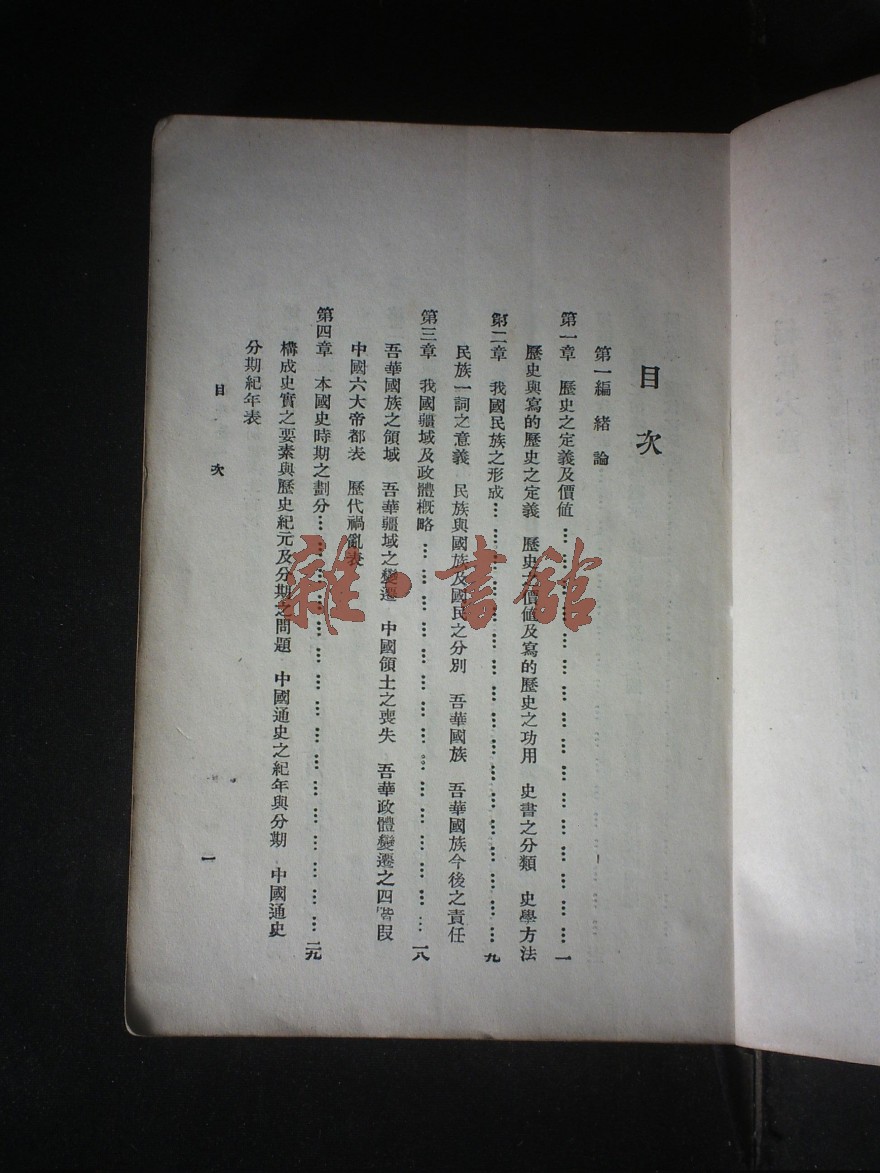 目次
第一編　緒論
第一章　歷史之定義及價値………………………………一
歷史與寫的歷史之定義　歷史之價値及寫的歷史之功用　史書之分類　史學方法
第二章　我國民族之形成………………………………九
民族一詞之意義　民族與國族及國民之分別　吾華國族　吾華國族今後之責任
第三章　我國疆域及政體槪略………………………………一八
吾華國族之領域　吾華疆域之變遷　中國領土之喪失　吾華政體變遷之四階段
中國六大帝都表　歷代禍亂表
第四章　本國史時期之劃分………………………………二九
構成史實之要素與歷史紀元及分期之問題　中國通史之紀年與分期　中國通史
分期紀年表
目次
一
雜·書館